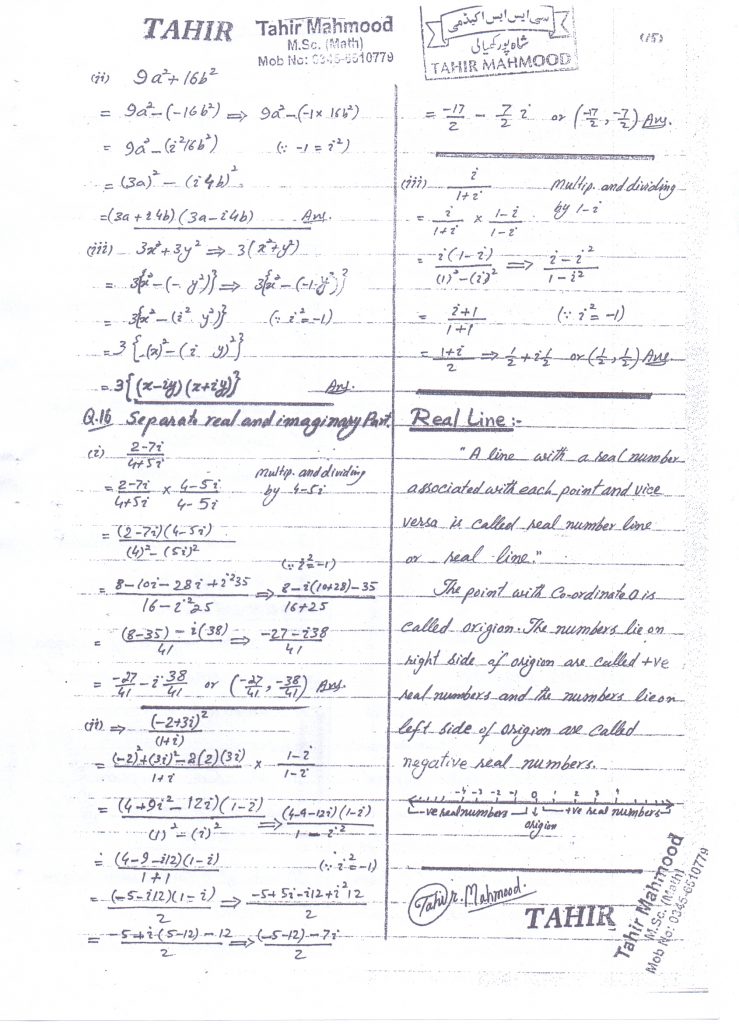 TAHIR
Tahir Mahmood
M.Sc. (Math)
Mob No: 0345-6510779
سی ایس ایس اکیڈمی
شاہ پور کھیالی
TAHIR MAHMOOD
(15)
(ii) 9a² + 16b²
= 9a² - (-16b²) ⇒ 9a² - (-1 × 16b²)
= 9a² - (i²16b²) (∵ -1 = i²)
= (3a)² - (i4b)²
= (3a + i4b)(3a - i4b) Ans.
(iii) 3x² + 3y² ⇒ 3(x² + y²)
= 3{x² - (- y²)} ⇒ 3{x² - (-1·y²)}
= 3{x² - (i² y²)} (∵ i² = -1)
= 3{(x)² - (i y)²}
= 3{(x-iy)(x+iy)} Ans.
Q.16 Separate real and imaginary Part.
(i) 2-7i / 4+5i
= 2-7i / 4+5i × 4-5i / 4-5i multip. and dividing by 4-5i
= (2-7i)(4-5i) / (4)² - (5i)²
(∵ i² = -1)
= 8-10i-28i+i²35 / 16-i²25 ⇒ 8-i(10+28)-35 / 16+25
= (8-35)-i(38) / 41 ⇒ -27-i38 / 41
= -27/41 - i 38/41 or (-27/41, -38/41) Ans.
(ii) ⇒ (-2+3i)² / (1+i)
= (-2)²+(3i)²-2(2)(3i) / 1+i × 1-i / 1-i
= (4+9i²-12i)(1-i) / (1)²-(i)² ⇒ (4-9-12i)(1-i) / 1-i²
= (4-9-i12)(1-i) / 1+1 (∵ i² = -1)
= (-5-i12)(1-i) / 2 ⇒ -5+5i-i12+i²12 / 2
= -5+i(5-12)-12 / 2 ⇒ (-5-12)-7i / 2
= -17/2 - 7/2 i or (-17/2, -7/2) Ans.
(iii) i / 1+i multip. and dividing
= i / 1+i × 1-i / 1-i by 1-i
= i(1-i) / (1)²-(i)² ⇒ i-i² / 1-i²
= i+1 / 1+1 (∵ i² = -1)
= 1+i / 2 ⇒ 1/2 + i 1/2 or (1/2, 1/2) Ans.
Real Line :-
"A line with a real number
associated with each point and vice
versa is called real number line
or real line."
The point with Co-ordinate 0 is
called origion. The numbers lie on
right side of origion are called +ve
real numbers and the numbers lie on
left side of origion are called
negative real numbers.
-4 -3 -2 -1 0 1 2 3 4
-ve real numbers origion +ve real numbers
Tahir. Mahmood.
TAHIR
Tahir Mahmood
M.Sc. (Math)
Mob No: 0345-6510779